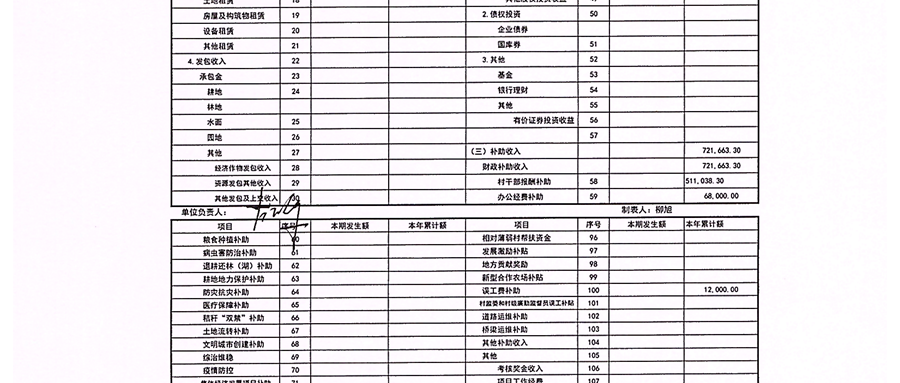 土地租赁 18
房屋及构筑物租赁 19 2.债权投资 50
设备租赁 20 企业债券
其他租赁 21 国库券 51
4.发包收入 22 3.其他 52
承包金 23 基金 53
耕地 24 银行理财 54
林地 其他 55
水面 25 有价证券投资收益 56
园地 26 57
其他 27 (三)补助收入 721,663.30
经济作物发包收入 28 财政补助收入 721,663.30
资源发包其他收入 29 村干部报酬补助 58 511,038.30
其他发包及上交收入 30 办公经费补助 59 68,000.00
单位负责人: 制表人:柳旭
项目 序号 本期发生额 本年累计额 项目 序号 本期发生额 本年累计额
粮食种植补助 60 相对薄弱村帮扶资金 96
病虫害防治补助 61 发展激励补贴 97
退耕还林(湖)补助 62 地方贡献奖励 98
耕地地力保护补助 63 新型合作农场补贴 99
防灾抗灾补助 64 误工费补助 100 12,000.00
医疗保障补助 65 村监委和村级廉勤监督员误工补贴 101
秸秆“双禁”补助 66 道路运维补助 102
土地流转补助 67 桥梁运维补助 103
文明城市创建补助 68 其他补助收入 104
综治维稳 69 其他 105
疫情防控 70 考核奖金收入 106
集体经济发展项目补助 71 项目工作经费 107